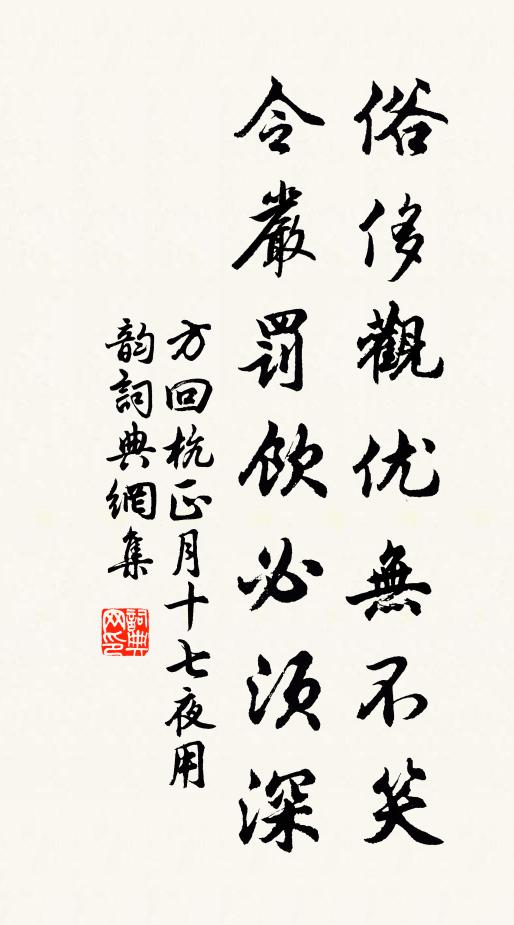 俗侈觀优無不笑
令嚴罰飲必須深
方回杭正月十七夜用
韵詞典網集
詞典
网印